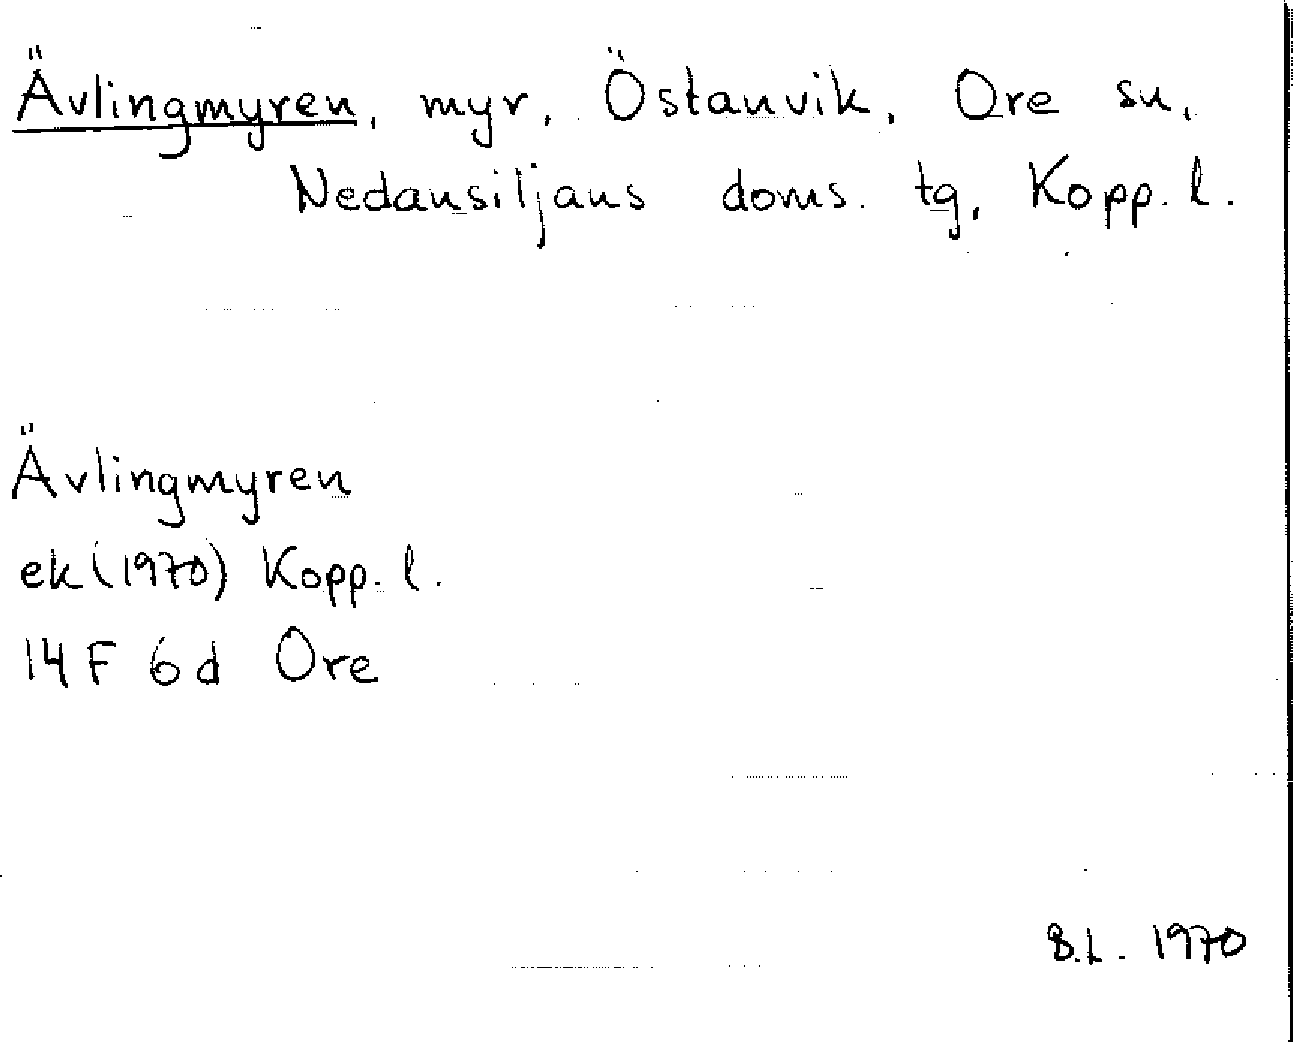 Ävlingmyren, myr, Östanvik, Ore sn,
Nedansiljans doms. tg, Kopp. l.
Ävlingmyren
ek (1970) Kopp. l.
14 F 6 d Ore
B.L. 1970